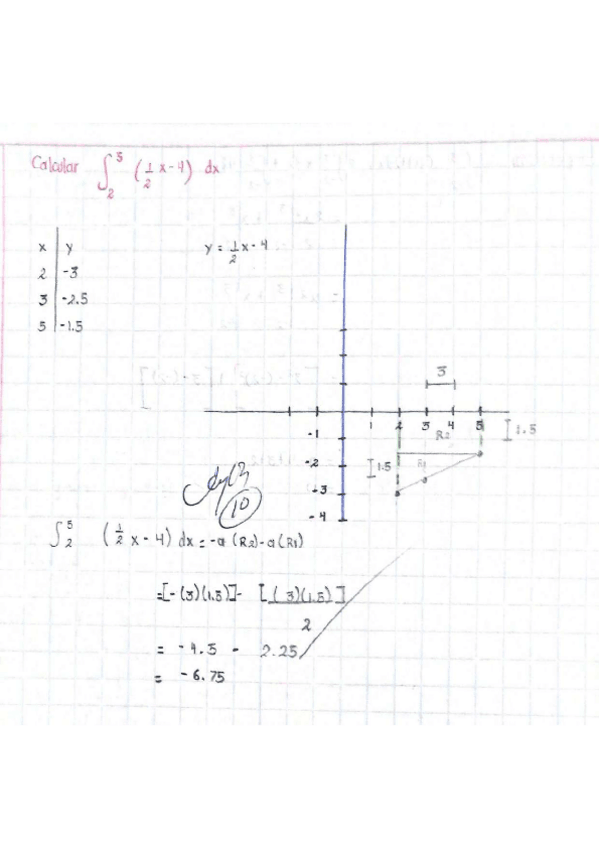 Calcular ∫₂⁵ (1/2 x - 4) dx
x | y
2 | -3
3 | -2.5
5 | -1.5
y = 1/2 x - 4
3
1 2 3 4 5
R2
1.5
-1
-2
1.5
R1
-3
-4
10
∫₂⁵ (1/2 x - 4) dx = -a (R2) - a (R1)
= [-(3)(1.5)] - [(3)(1.5)]
2
= -4.5 - 2.25
= -6.75